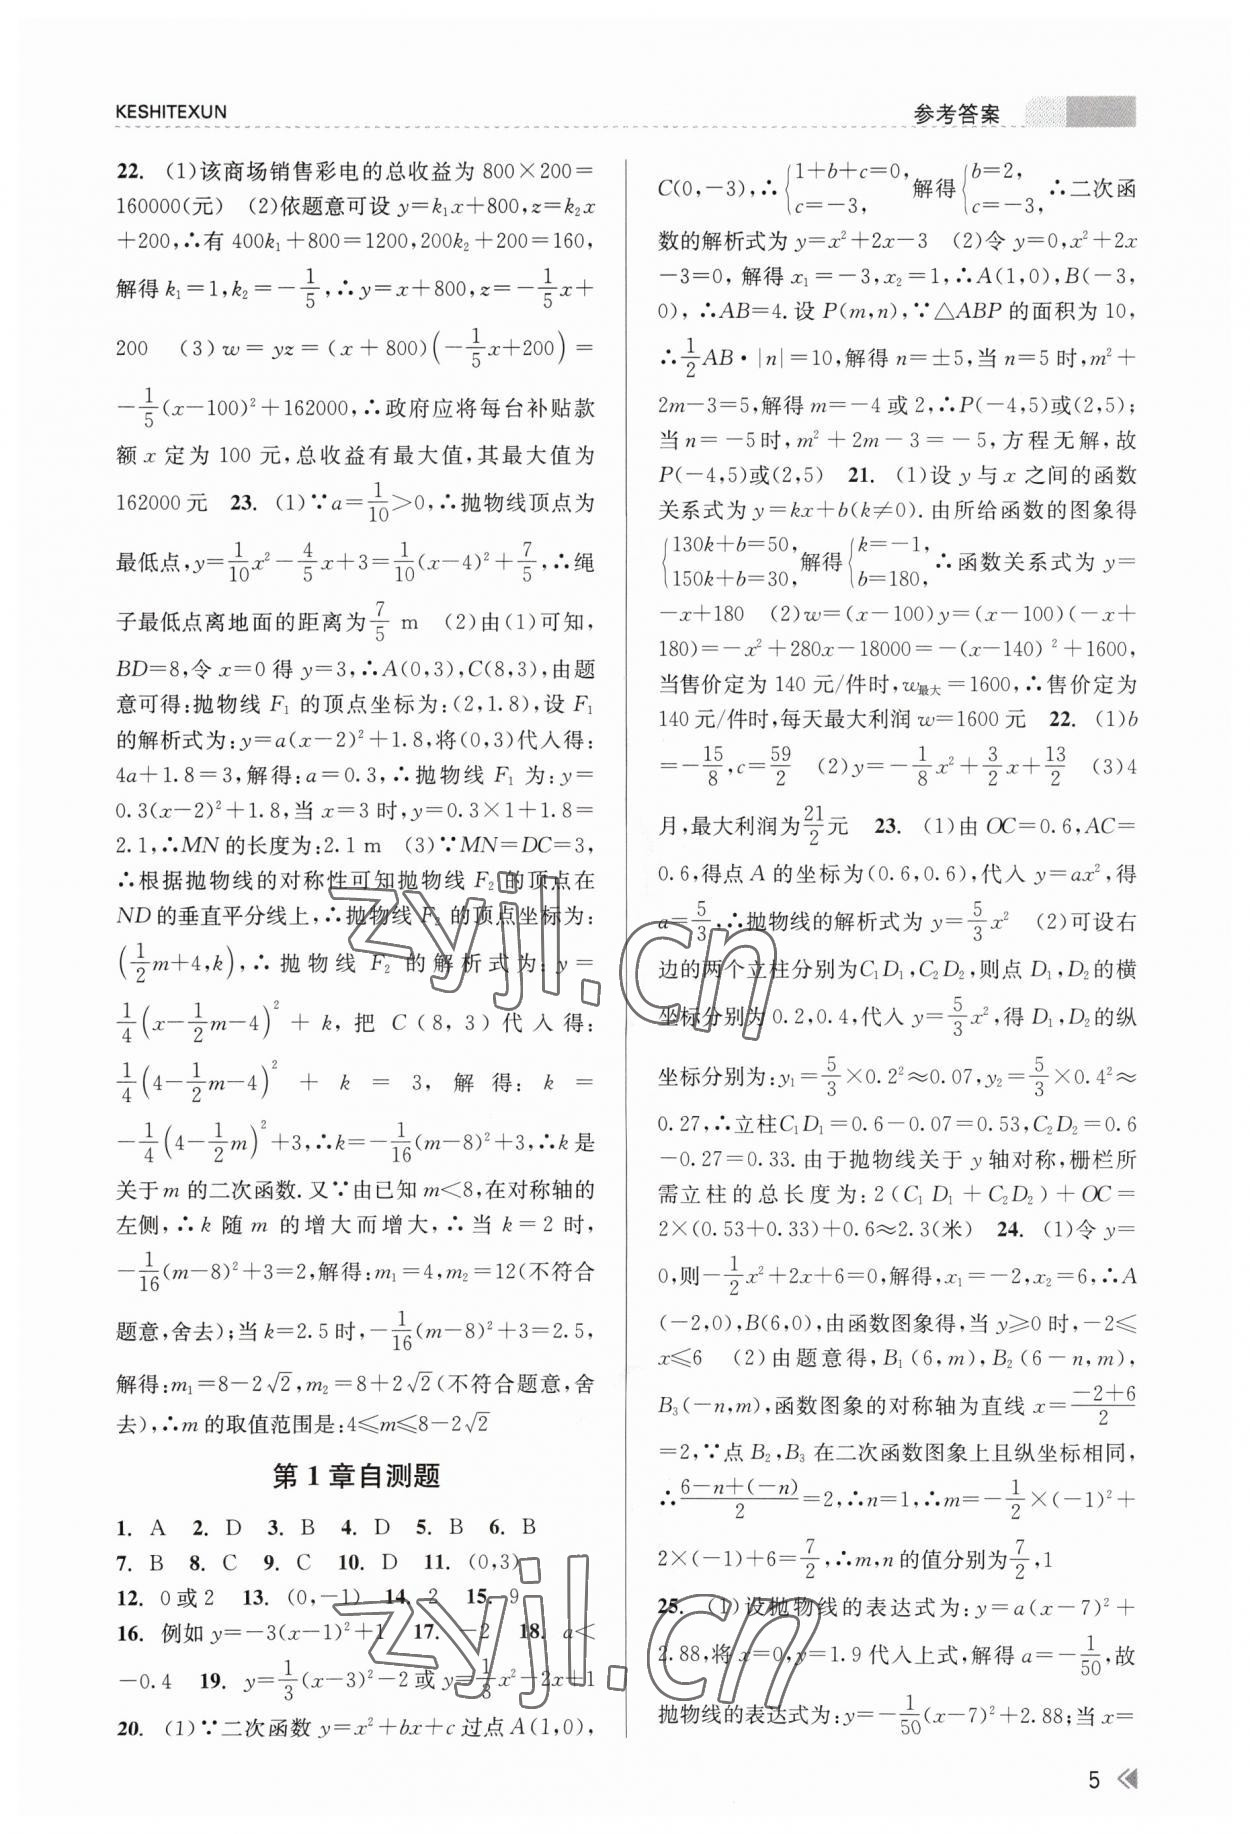 KESHITEXUN
参考答案
22. (1)该商场销售彩电的总收益为 800×200=
160000(元) (2)依题意可设 y=k₁x+800,z=k₂x
+200,∴有 400k₁+800=1200,200k₂+200=160,
解得 k₁=1,k₂=-1/5,∴y=x+800,z=-1/5x+
200 (3) w=yz=(x+800)(-1/5x+200)=
-1/5(x-100)²+162000,∴政府应将每台补贴款
额 x 定为 100 元,总收益有最大值,其最大值为
162000 元 23. (1)∵a=1/10>0,∴抛物线顶点为
最低点,y=1/10x²-4/5x+3=1/10(x-4)²+7/5,∴绳
子最低点离地面的距离为7/5 m (2)由(1)可知,
BD=8,令 x=0 得 y=3,∴A(0,3),C(8,3),由题
意可得:抛物线 F₁ 的顶点坐标为:(2,1.8),设 F₁
的解析式为:y=a(x-2)²+1.8,将(0,3)代入得:
4a+1.8=3,解得:a=0.3,∴抛物线 F₁ 为:y=
0.3(x-2)²+1.8,当 x=3 时,y=0.3×1+1.8=
2.1,∴MN 的长度为:2.1 m (3)∵MN=DC=3,
∴根据抛物线的对称性可知抛物线 F₂ 的顶点在
ND 的垂直平分线上,∴抛物线 F₂ 的顶点坐标为:
(1/2m+4,k),∴抛物线 F₂ 的解析式为:y=
1/4(x-1/2m-4)²+k,把 C(8,3)代入得:
1/4(4-1/2m-4)²+k=3,解得:k=
-1/4(4-1/2m)²+3,∴k=-1/16(m-8)²+3,∴k 是
关于 m 的二次函数.又∵由已知 m<8,在对称轴的
左侧,∴k 随 m 的增大而增大,∴当 k=2 时,
-1/16(m-8)²+3=2,解得:m₁=4,m₂=12(不符合
题意,舍去);当 k=2.5 时,-1/16(m-8)²+3=2.5,
解得:m₁=8-2√2,m₂=8+2√2(不符合题意,舍
去),∴m 的取值范围是:4≤m≤8-2√2
第 1 章自测题
1. A 2. D 3. B 4. D 5. B 6. B
7. B 8. C 9. C 10. D 11. (0,3)
12. 0或2 13. (0,-1) 14. 2 15. 9
16. 例如 y=-3(x-1)²+1 17. -2 18. a<
-0.4 19. y=1/3(x-3)²-2 或 y=1/8x²-2x+1
20. (1)∵二次函数 y=x²+bx+c 过点 A(1,0),
C(0,-3),∴{1+b+c=0, c=-3, 解得{b=2, c=-3, ∴二次函
数的解析式为 y=x²+2x-3 (2)令 y=0,x²+2x
-3=0, 解得 x₁=-3,x₂=1,∴A(1,0),B(-3,
0), ∴AB=4.设 P(m,n),∵△ABP 的面积为 10,
∴1/2AB·|n|=10,解得 n=±5,当 n=5 时,m²+
2m-3=5,解得 m=-4 或 2,∴P(-4,5)或(2,5);
当 n=-5时,m²+2m-3=-5,方程无解,故
P(-4,5)或(2,5) 21. (1)设 y 与 x 之间的函数
关系式为 y=kx+b(k≠0).由所给函数的图象得
{130k+b=50, 150k+b=30, 解得{k=-1, b=180, ∴函数关系式为 y=
-x+180 (2)w=(x-100)y=(x-100)(-x+
180)=-x²+280x-18000=-(x-140)²+1600,
当售价定为 140 元/件时,w最大=1600,∴售价定为
140 元/件时,每天最大利润 w=1600 元 22. (1)b
=-15/8,c=59/2 (2)y=-1/8x²+3/2x+13/2 (3)4
月,最大利润为21/2元 23. (1)由 OC=0.6,AC=
0.6,得点 A 的坐标为(0.6,0.6),代入 y=ax²,得
a=5/3,∴抛物线的解析式为 y=5/3x² (2)可设右
边的两个立柱分别为C₁D₁,C₂D₂,则点 D₁,D₂的横
坐标分别为 0.2,0.4,代入 y=5/3x²,得 D₁,D₂的纵
坐标分别为:y₁=5/3×0.2²≈0.07,y₂=5/3×0.4²≈
0.27,∴立柱C₁D₁=0.6-0.07=0.53,C₂D₂=0.6
-0.27=0.33.由于抛物线关于 y 轴对称,栅栏所
需立柱的总长度为:2(C₁D₁+C₂D₂)+OC=
2×(0.53+0.33)+0.6≈2.3(米) 24. (1)令 y=
0,则-1/2x²+2x+6=0,解得,x₁=-2,x₂=6,∴A
(-2,0),B(6,0),由函数图象得,当 y≥0 时,-2≤
x≤6 (2)由题意得,B₁(6,m),B₂(6-n,m),
B₃(-n,m),函数图象的对称轴为直线 x=(-2+6)/2
=2,∵点 B₂,B₃ 在二次函数图象上且纵坐标相同,
∴(6-n+(-n))/2=2,∴n=1,∴m=-1/2×(-1)²+
2×(-1)+6=7/2,∴m,n 的值分别为7/2,1
25. (1)设抛物线的表达式为:y=a(x-7)²+
2.88,将 x=0,y=1.9 代入上式,解得 a=-1/50,故
抛物线的表达式为:y=-1/50(x-7)²+2.88;当 x=
5
zyjl.cn
zyjl.cn